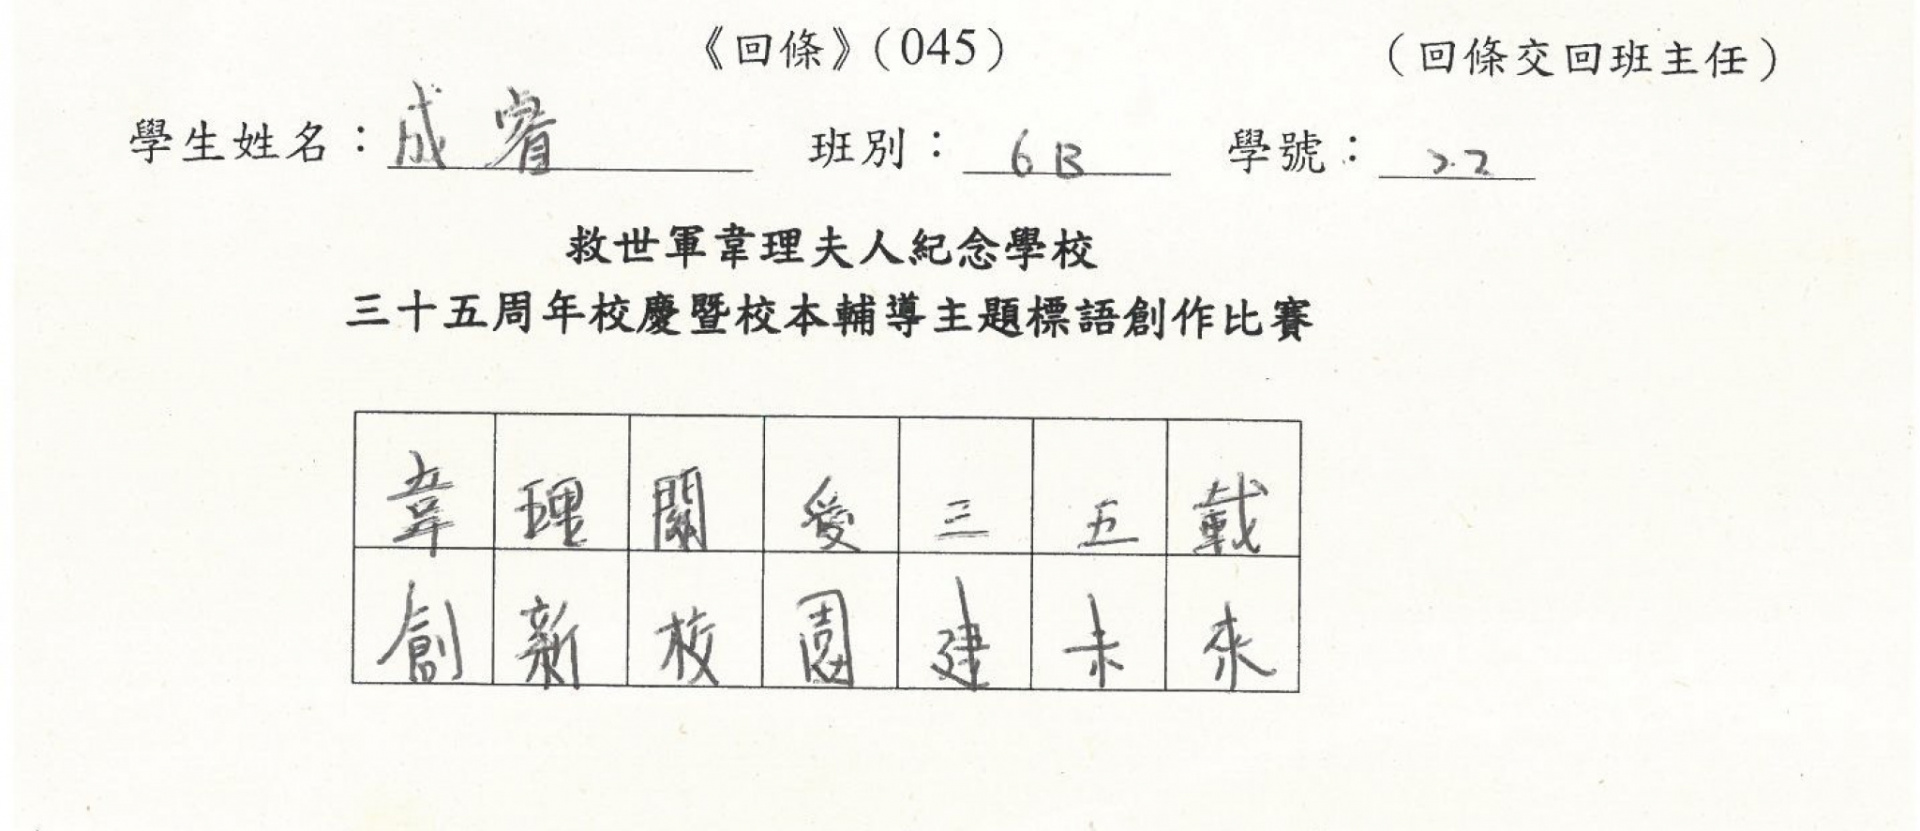 《回條》(045) (回條交回班主任)
學生姓名：成睿 班別： 6B 學號： 22
救世軍韋理夫人紀念學校
三十五周年校慶暨校本輔導主題標語創作比賽
韋理關愛三五載
創新校園建未來